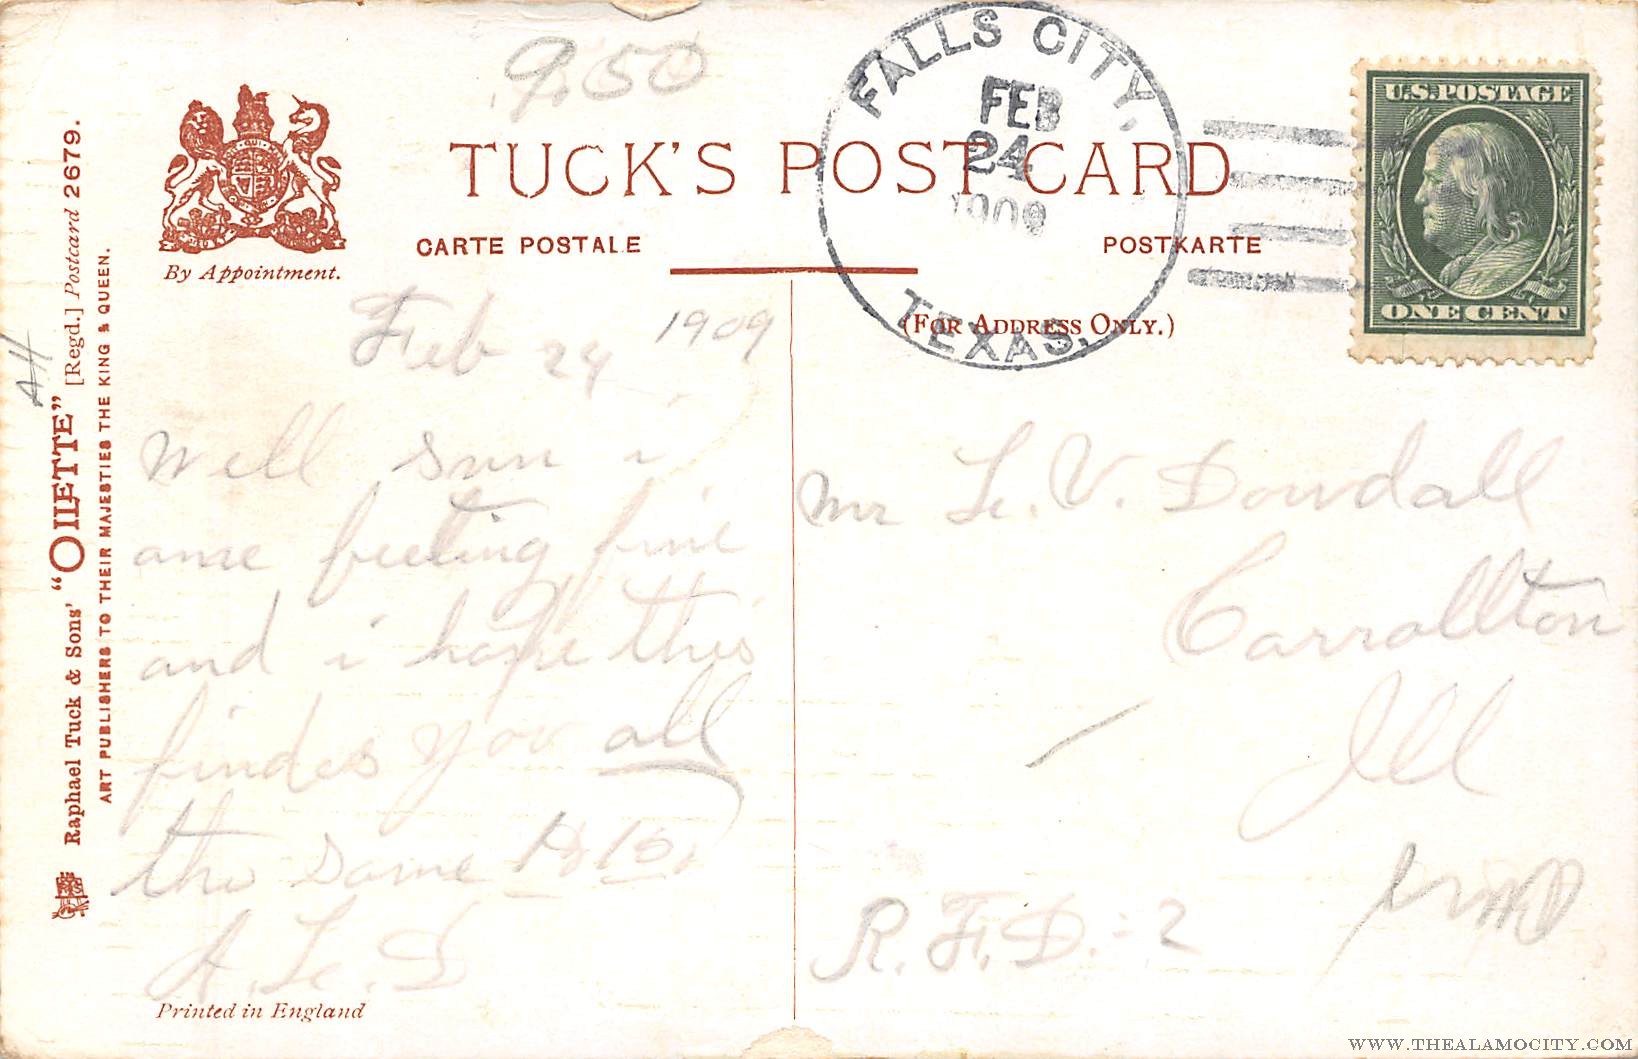 9.50
FALLS CITY,
FEB
24
1909
TEXAS.
U.S. POSTAGE
ONE CENT
TUCK'S POST CARD
CARTE POSTALE
POSTKARTE
(FOR ADDRESS ONLY.)
By Appointment.
Raphael Tuck & Sons' "OILETTE" [Regd.] Postcard 2679.
ART PUBLISHERS TO THEIR MAJESTIES THE KING & QUEEN.
Feb 24, 1909
Well i
feeling fine
and i hope this
findes you all
the same
Mr L. V. Dowdall
Carrollton
Ill
R.F.D.-2
Printed in England
WWW.THEALAMOCITY.COM